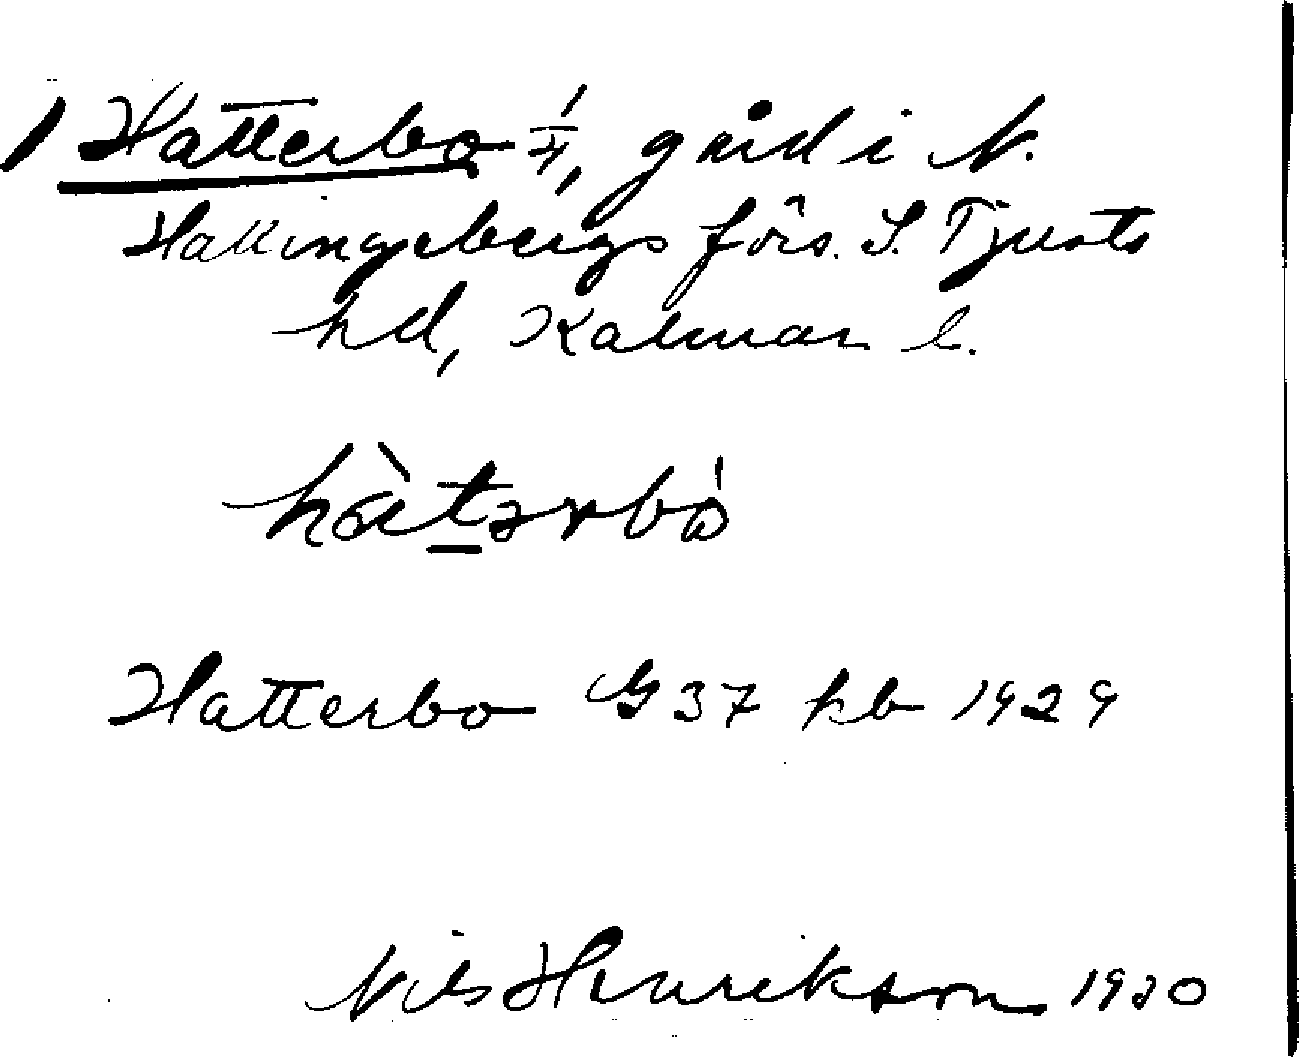 Hatterbo 1/4, gård i N.
Hallingebergs förs. S. Tjusts
hd, Kalmar l.
hàtərbò
Hatterbo G 37 kb 1929
Nils Henrikson 1930